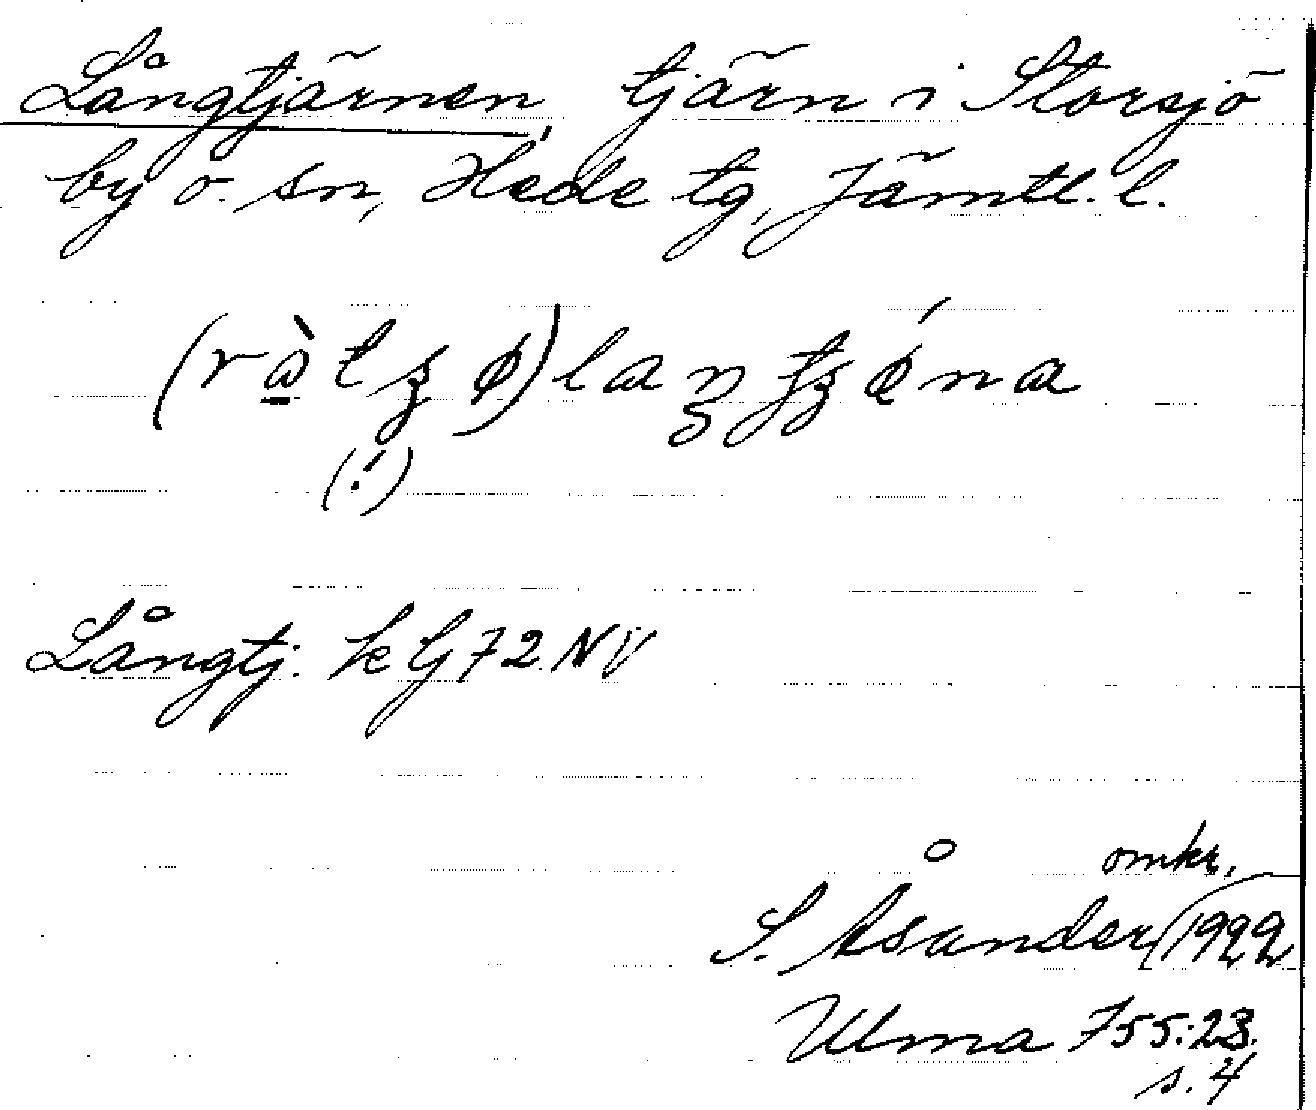 Långtjärnen, tjärn i Storsjö
by o. sn, Hede tg, Jämtl. l.
Långtj. k G 72 NV
omkr.
S. Åsander 1922
Ulma 755:23.
s. 4